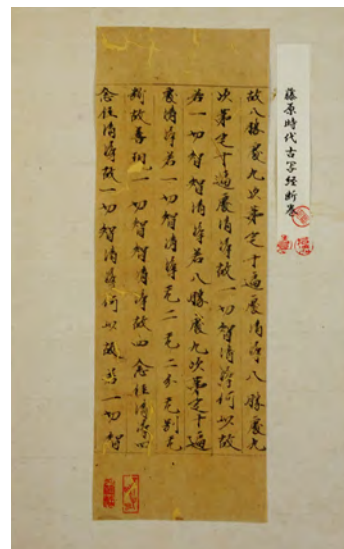 藤原時代古写経断巻
故八勝處九次第定十遍處清淨八勝處九
次第定十遍處清淨故一切智清淨何以故
若一切智智清淨若八勝處九次第定十遍
處清淨若一切智智清淨无二无二分无別无
斷故善現一切智智清淨故四念住清淨四
念住清淨故一切智智清淨何以故若一切智